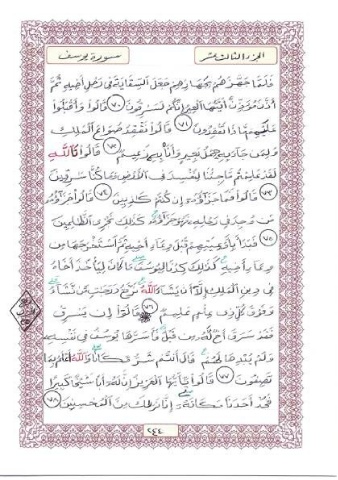 الجزء الثالث عشر
سورة يوسف
فَلَمَّا جَهَّزَهُم بِجَهَازِهِمْ جَعَلَ السِّقَايَةَ فِي رَحْلِ أَخِيهِ ثُمَّ
أَذَّنَ مُؤَذِّنٌ أَيَّتُهَا الْعِيرُ إِنَّكُمْ لَسَارِقُونَ ٧٠ قَالُوا وَأَقْبَلُوا
عَلَيْهِم مَّاذَا تَفْقِدُونَ ٧١ قَالُوا نَفْقِدُ صُوَاعَ الْمَلِكِ
وَلِمَن جَاءَ بِهِ حِمْلُ بَعِيرٍ وَأَنَا بِهِ زَعِيمٌ ٧٢ قَالُوا تَاللَّهِ
لَقَدْ عَلِمْتُم مَّا جِئْنَا لِنُفْسِدَ فِي الْأَرْضِ وَمَا كُنَّا سَارِقِينَ
٧٣ قَالُوا فَمَا جَزَاؤُهُ إِن كُنتُمْ كَاذِبِينَ ٧٤ قَالُوا جَزَاؤُهُ
مَن وُجِدَ فِي رَحْلِهِ فَهُوَ جَزَاؤُهُ كَذَلِكَ نَجْزِي الظَّالِمِينَ
٧٥ فَبَدَأَ بِأَوْعِيَتِهِمْ قَبْلَ وِعَاءِ أَخِيهِ ثُمَّ اسْتَخْرَجَهَا مِن
وِعَاءِ أَخِيهِ كَذَلِكَ كِدْنَا لِيُوسُفَ مَا كَانَ لِيَأْخُذَ أَخَاهُ
فِي دِينِ الْمَلِكِ إِلَّا أَن يَشَاءَ اللَّهُ نَرْفَعُ دَرَجَاتٍ مَّن نَّشَاءُ
وَفَوْقَ كُلِّ ذِي عِلْمٍ عَلِيمٌ ٧٦ قَالُوا إِن يَسْرِقْ
فَقَدْ سَرَقَ أَخٌ لَّهُ مِن قَبْلُ فَأَسَرَّهَا يُوسُفُ فِي نَفْسِهِ
وَلَمْ يُبْدِهَا لَهُمْ قَالَ أَنتُمْ شَرٌّ مَّكَانًا وَاللَّهُ أَعْلَمُ بِمَا
تَصِفُونَ ٧٧ قَالُوا يَا أَيُّهَا الْعَزِيزُ إِنَّ لَهُ أَبًا شَيْخًا كَبِيرًا
فَخُذْ أَحَدَنَا مَكَانَهُ إِنَّا نَرَاكَ مِنَ الْمُحْسِنِينَ ٧٨
٢٤٤